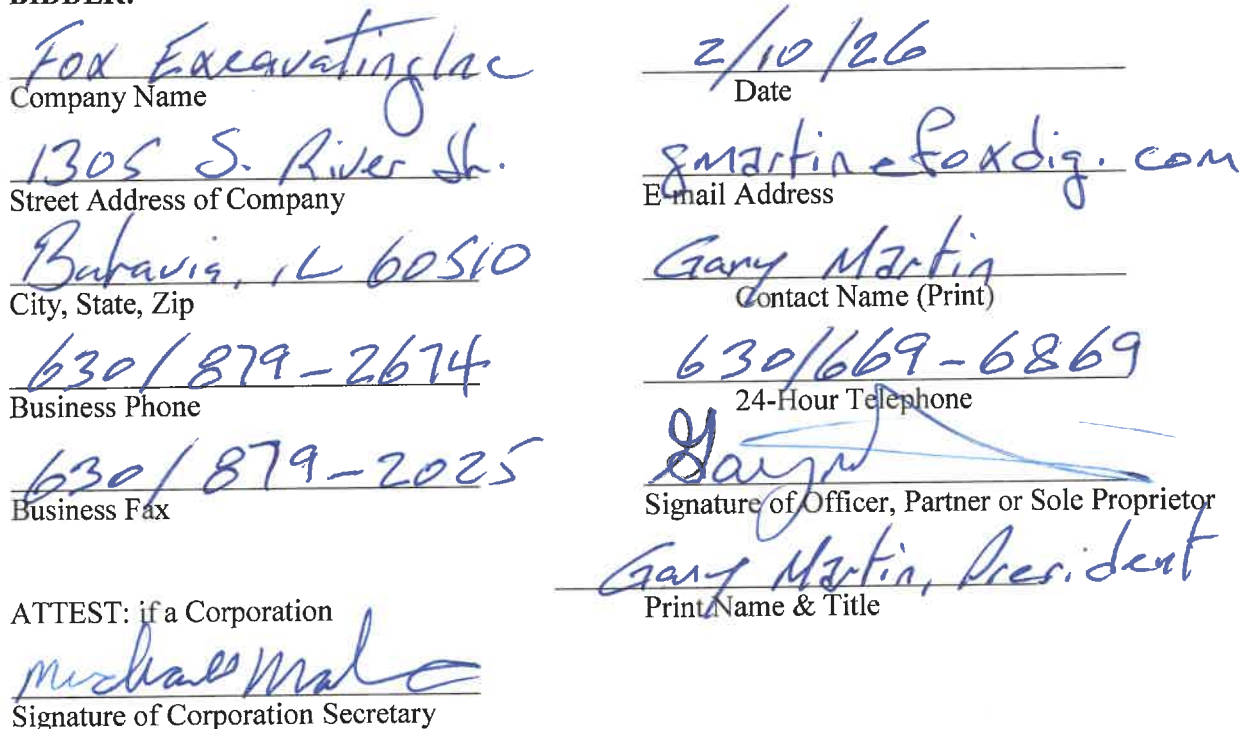 BIDDER:
Fox Excavating Inc
Company Name
1305 S. River St.
Street Address of Company
Batavia, IL 60510
City, State, Zip
630/879-2674
Business Phone
630/879-2025
Business Fax
ATTEST: if a Corporation
Signature of Corporation Secretary
2/10/26
Date
gmartin@foxdig.com
E-mail Address
Gary Martin
Contact Name (Print)
630/669-6869
24-Hour Telephone
Signature of Officer, Partner or Sole Proprietor
Gary Martin, President
Print Name & Title